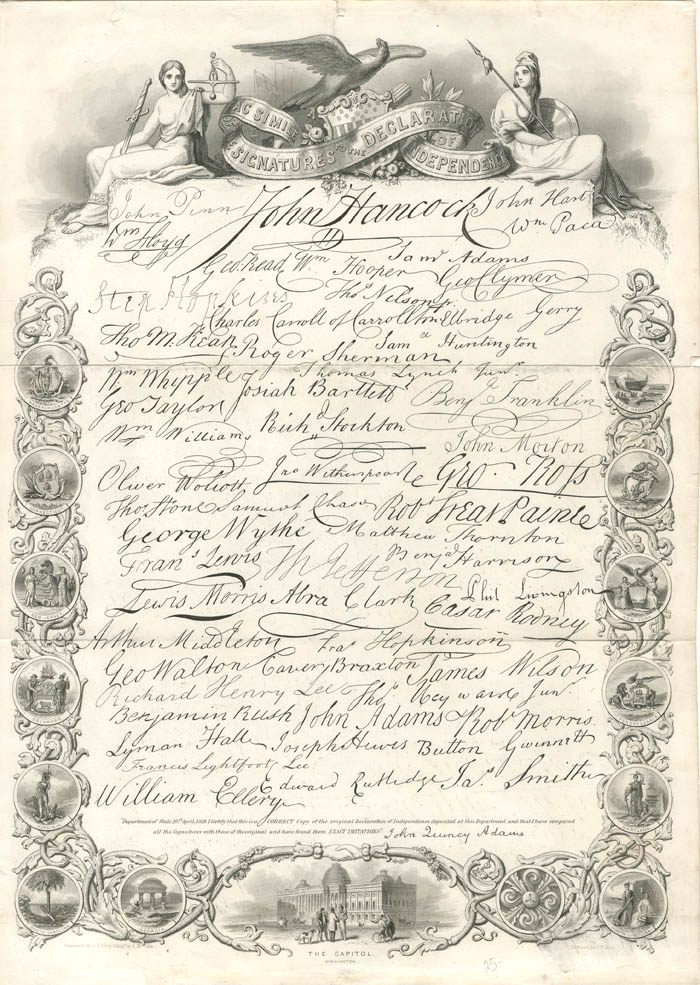 FAC SIMILE
OF THE
SIGNATURES TO THE DECLARATION OF INDEPENDENCE
John Penn John Hancock John Hart
Wm Floyd Wm Paca
Geo. Read Wm Hooper Sam Adams
Geo Clymer
Step Hopkins Thos Nelson jr.
Charles Carroll of Carrollton Elbridge Gerry
Tho M. Kean Roger Sherman Sam Huntington
Wm Whipple Thomas Lynch Junr.
Josiah Bartlett Benj Franklin
Geo Taylor Richd Stockton
Wm Williams John Morton
Oliver Wolcott Jno Witherspoon Geo. Ross
Thos Stone Samuel Chase Robt Treat Paine
George Wythe Matthew Thornton
Frans Lewis Th Jefferson Benja Harrison
Lewis Morris Abra Clark Phil Livingston
Cæsar Rodney
Arthur Middleton Fras Hopkinson
Geo Walton Carter Braxton James Wilson
Richard Henry Lee Thos Heyward Junr.
Benjamin Rush John Adams Robt Morris
Lyman Hall Joseph Hewes Button Gwinnett
Francis Lightfoot Lee
William Ellery Edward Rutledge Jas Smith
"Department of State, 19th April, 1819. I Certify that this is a CORRECT Copy of the original Declaration of Independence deposited at this Department, and that I have compared
all the Signatures with those of the original and have found them EXACT IMITATIONS." John Quincy Adams
THE CAPITOL.
WASHINGTON.
25-